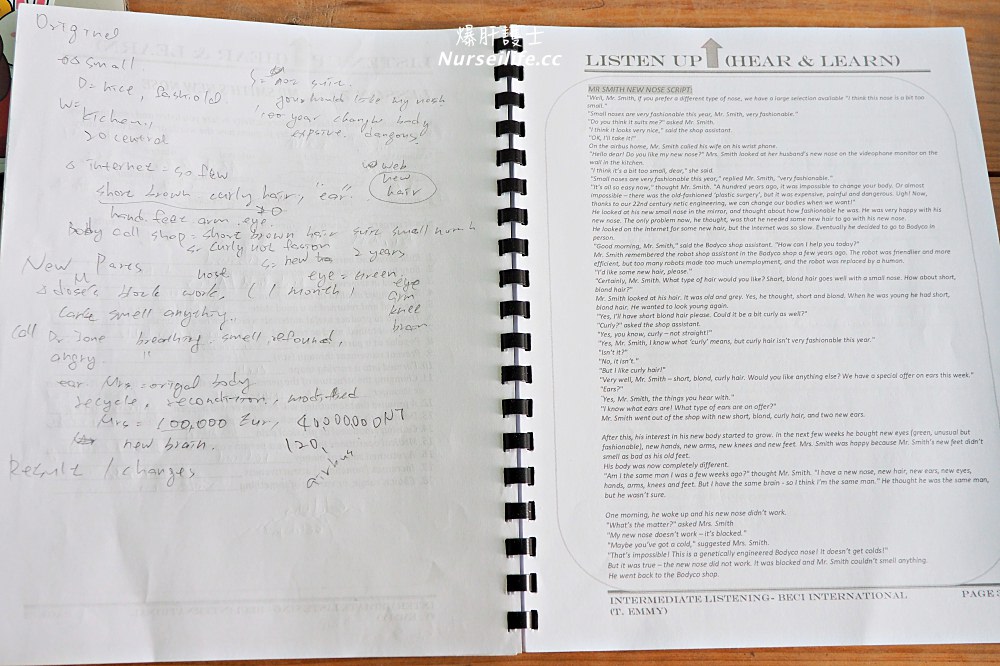 爆肝護士
Nurseilife.cc
Original
small
D= nice, fashiold
W=
Kichen,,
20 central
100 year change body
expsive. dangous.
internet - so few
web
new
hair
short brown curly hair, "ear"
hand. feet. arm. eye
Body call shop = short brown hair
curly not fasion
2 years
New Parts
nose
eye = green,
eye
arm
knee
brain
work, (1 month)
smell anything.
Call Dr. Jone breathing. smell. refound,
angry. "
ear. Mrs = origal body
recycle, recondition, modified
Mrs = 100,000 Eur,
new brain.
120,
Result / changes
LISTEN UP (HEAR & LEARN)
MR SMITH NEW NOSE SCRIPT:
"Well, Mr. Smith, if you prefer a different type of nose, we have a large selection available "I think this nose is a bit too
small."
"Small noses are very fashionable this year, Mr. Smith, very fashionable."
"Do you think it suits me?" asked Mr. Smith.
"I think it looks very nice," said the shop assistant.
"OK, I'll take it!"
On the airbus home, Mr. Smith called his wife on his wrist phone.
"Hello dear! Do you like my new nose?" Mrs. Smith looked at her husband's new nose on the videophone monitor on the
wall in the kitchen.
"I think it's a bit too small, dear," she said.
"Small noses are very fashionable this year," replied Mr. Smith, "very fashionable."
"It's all so easy now," thought Mr. Smith. "A hundred years ago, it was impossible to change your body. Or almost
impossible – there was the old-fashioned 'plastic surgery', but it was expensive, painful and dangerous. Ugh! Now,
thanks to our 22nd century netic engineering, we can change our bodies when we want!"
He looked at his new small nose in the mirror, and thought about how fashionable he was. He was very happy with his
new nose. The only problem now, he thought, was that he needed some new hair to go with his new nose.
He looked on the internet for some new hair, but the Internet was so slow. Eventually he decided to go to Bodyco in
person.
"Good morning, Mr. Smith," said the Bodyco shop assistant. "How can I help you today?"
Mr. Smith remembered the robot shop assistant in the Bodyco shop a few years ago. The robot was friendlier and more
efficient, but too many robots made too much unemployment, and the robot was replaced by a human.
"I'd like some new hair, please."
"Certainly, Mr. Smith. What type of hair would you like? Short, blond hair goes well with a small nose. How about short,
blond hair?"
Mr. Smith looked at his hair. It was old and grey. Yes, he thought, short and blond. When he was young he had short,
blond hair. He wanted to look young again.
"Yes, I'll have short blond hair please. Could it be a bit curly as well?"
"Curly?" asked the shop assistant.
"Yes, you know, curly – not straight!"
"Yes, Mr. Smith, I know what 'curly' means, but curly hair isn't very fashionable this year."
"Isn't it?"
"No, it isn't."
"But I like curly hair!"
"Very well, Mr. Smith – short, blond, curly hair. Would you like anything else? We have a special offer on ears this week."
"Ears?"
"Yes, Mr. Smith, the things you hear with."
"I know what ears are! What type of ears are on offer?"
Mr. Smith went out of the shop with new short, blond, curly hair, and two new ears.
After this, his interest in his new body started to grow. In the next few weeks he bought new eyes (green, unusual but
fashionable), new hands, new arms, new knees and new feet. Mrs. Smith was happy because Mr. Smith's new feet didn't
smell as bad as his old feet.
His body was now completely different.
"Am I the same man I was a few weeks ago?" thought Mr. Smith. "I have a new nose, new hair, new ears, new eyes,
hands, arms, knees and feet. But I have the same brain - so I think I'm the same man." He thought he was the same man,
but he wasn't sure.
One morning, he woke up and his new nose didn't work.
"What's the matter?" asked Mrs. Smith
"My new nose doesn't work – it's blocked."
"Maybe you've got a cold," suggested Mrs. Smith.
"That's impossible! This is a genetically engineered Bodyco nose! It doesn't get colds!"
But it was true – the new nose did not work. It was blocked and Mr. Smith couldn't smell anything.
He went back to the Bodyco shop.
INTERMEDIATE LISTENING- BECI INTERNATIONAL
(T. EMMY)
PAGE